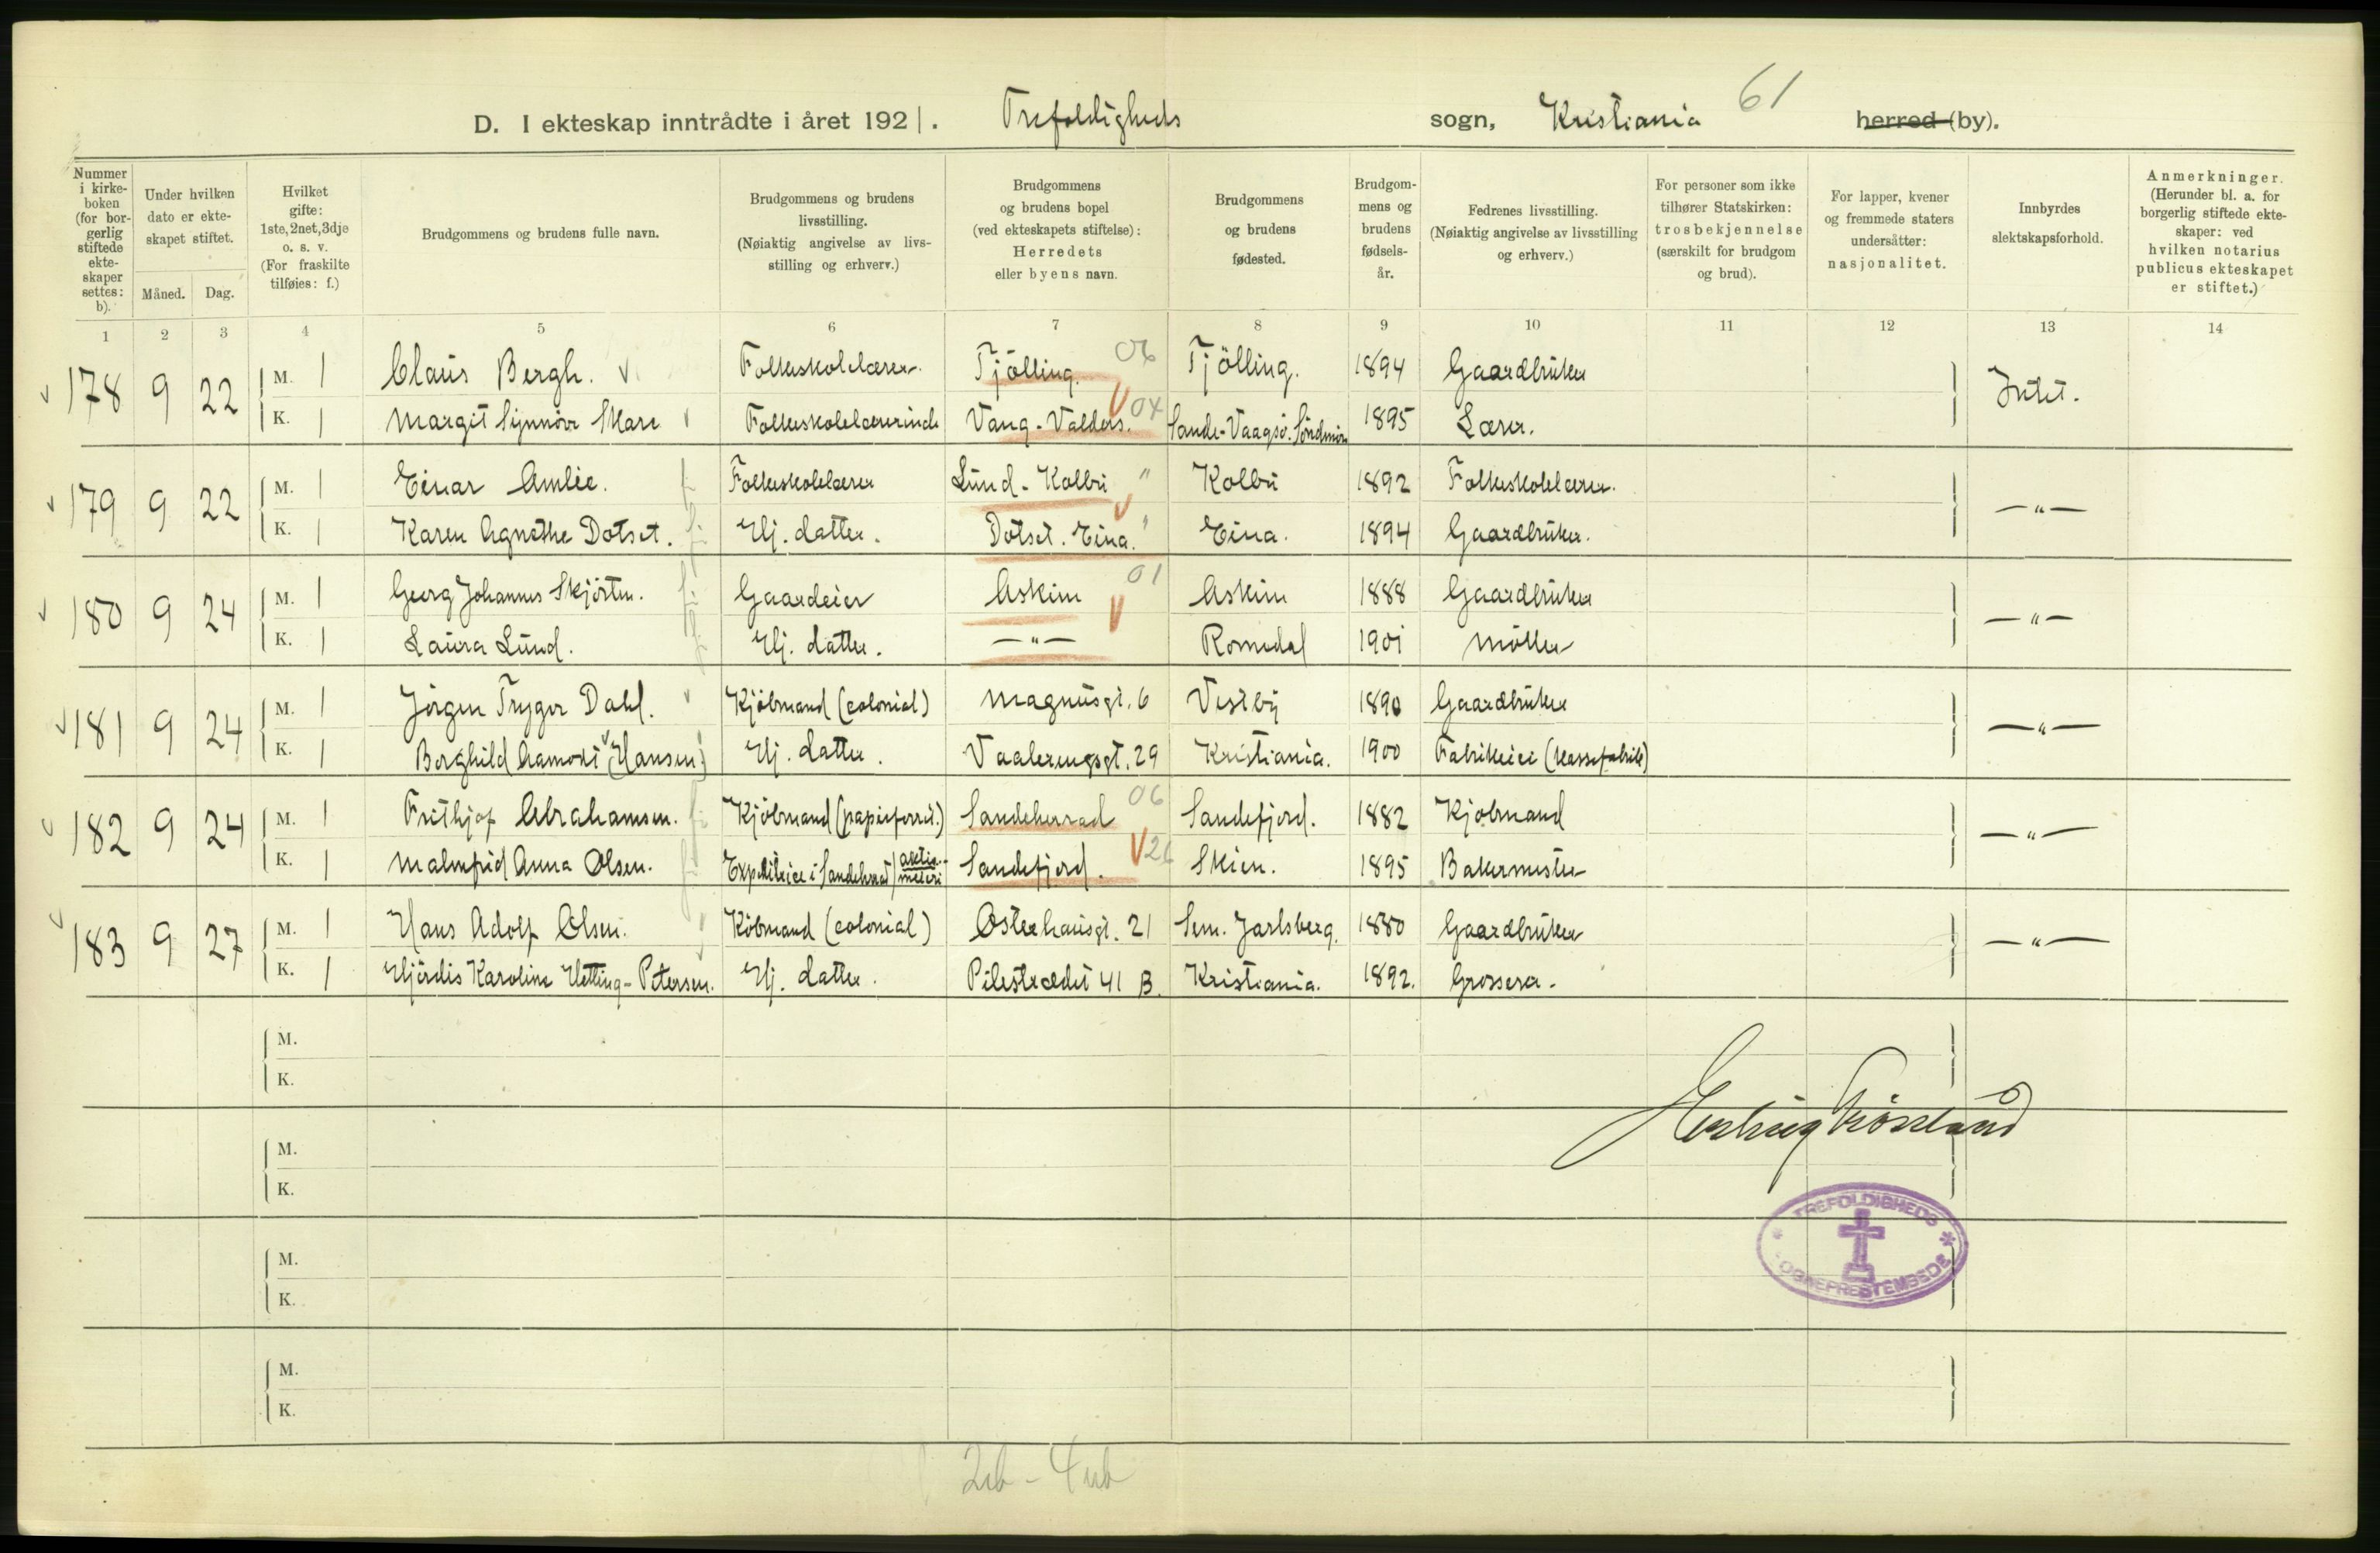 61
D. I ekteskap inntrådte i året 1921. Trefoldigheds sogn, Kristiania herred (by).
Nummer i kirkeboken (for borgerlig stiftede ekteskaper settes: b).
Under hvilken dato er ekteskapet stiftet.
Måned. Dag.
Hvilket gifte: 1ste, 2net, 3dje o. s. v. (For fraskilte tilføies: f.)
Brudgommens og brudens fulle navn.
Brudgommens og brudens livsstilling. (Nøiaktig angivelse av livsstilling og erhverv.)
Brudgommens og brudens bopel (ved ekteskapets stiftelse): Herredets eller byens navn.
Brudgommens og brudens fødested.
Brudgommens og brudens fødselsår.
Fedrenes livsstilling. (Nøiaktig angivelse av livsstilling og erhverv.)
For personer som ikke tilhører Statskirken: trosbekjennelse (særskilt for brudgom og brud).
For lapper, kvener og fremmede staters undersåtter: nasjonalitet.
Innbyrdes slektskapsforhold.
Anmerkninger. (Herunder bl. a. for borgerlig stiftede ekteskaper: ved hvilken notarius publicus ekteskapet er stiftet.)
1 2 3 4 5 6 7 8 9 10 11 12 13 14
178 9 22 M. 1 Claus Bergh. Folkeskolelærer. Tjölling. 06 Tjölling. 1894 Gaardbruker Intet.
K. 1 Margit Synnöve Skare Folkeskolelærerinde Vang-Valdres. 04 Sande-Vaagsö. Söndmör 1895 Lærer.
179 9 22 M. 1 Einar Amlie. Folkeskolelærer Lund-Kolbu " Kolbu 1892 Folkeskolelærer. —"—
K. 1 Karen Agnethe Dotset. Hj. datter. Dotset. Eina. " Eina. 1894 Gaardbruker.
180 9 24 M. 1 Georg Johannes Skjörten. Gaardeier Askim 01 Askim 1888 Gaardbruker —"—
K. 1 Laura Lund. Hj. datter. —"— Romedal 1901 Möller
181 9 24 M. 1 Jörgen Trygve Dahl. Kjöbmand (colonial) Magnusgt. 6 Vestby 1890 Gaardbruker —"—
K. 1 Borghild Aamodt (Hansen) Hj. datter. Vaalerengsgt. 29 Kristiania. 1900 Fabrikeier (kassefabrik)
182 9 24 M. 1 Frithjof Abrahamsen. Kjöbmand (papirforret.) Sandeherred 06 Sandefjord. 1882 Kjöbmand —"—
K. 1 Malmfrid Anna Olsen. Expeditrice i Sandeherred aktiemeieri Sandefjord. 26 Skien. 1895 Bakermester
183 9 27 M. 1 Hans Adolf Olsen. Köbmand (colonial) Osterhausgt. 21 Sem. Jarlsberg. 1880 Gaardbruker —"—
K. 1 Hjördis Karoline Hetting-Petersen. Hj. datter. Pilestrædet 41 B. Kristiania. 1892. Grosserer.
M.
K.
M.
K.
M.
K.
M.
K.
TREFOLDIGHEDS
SOGNEPRESTEMBEDE